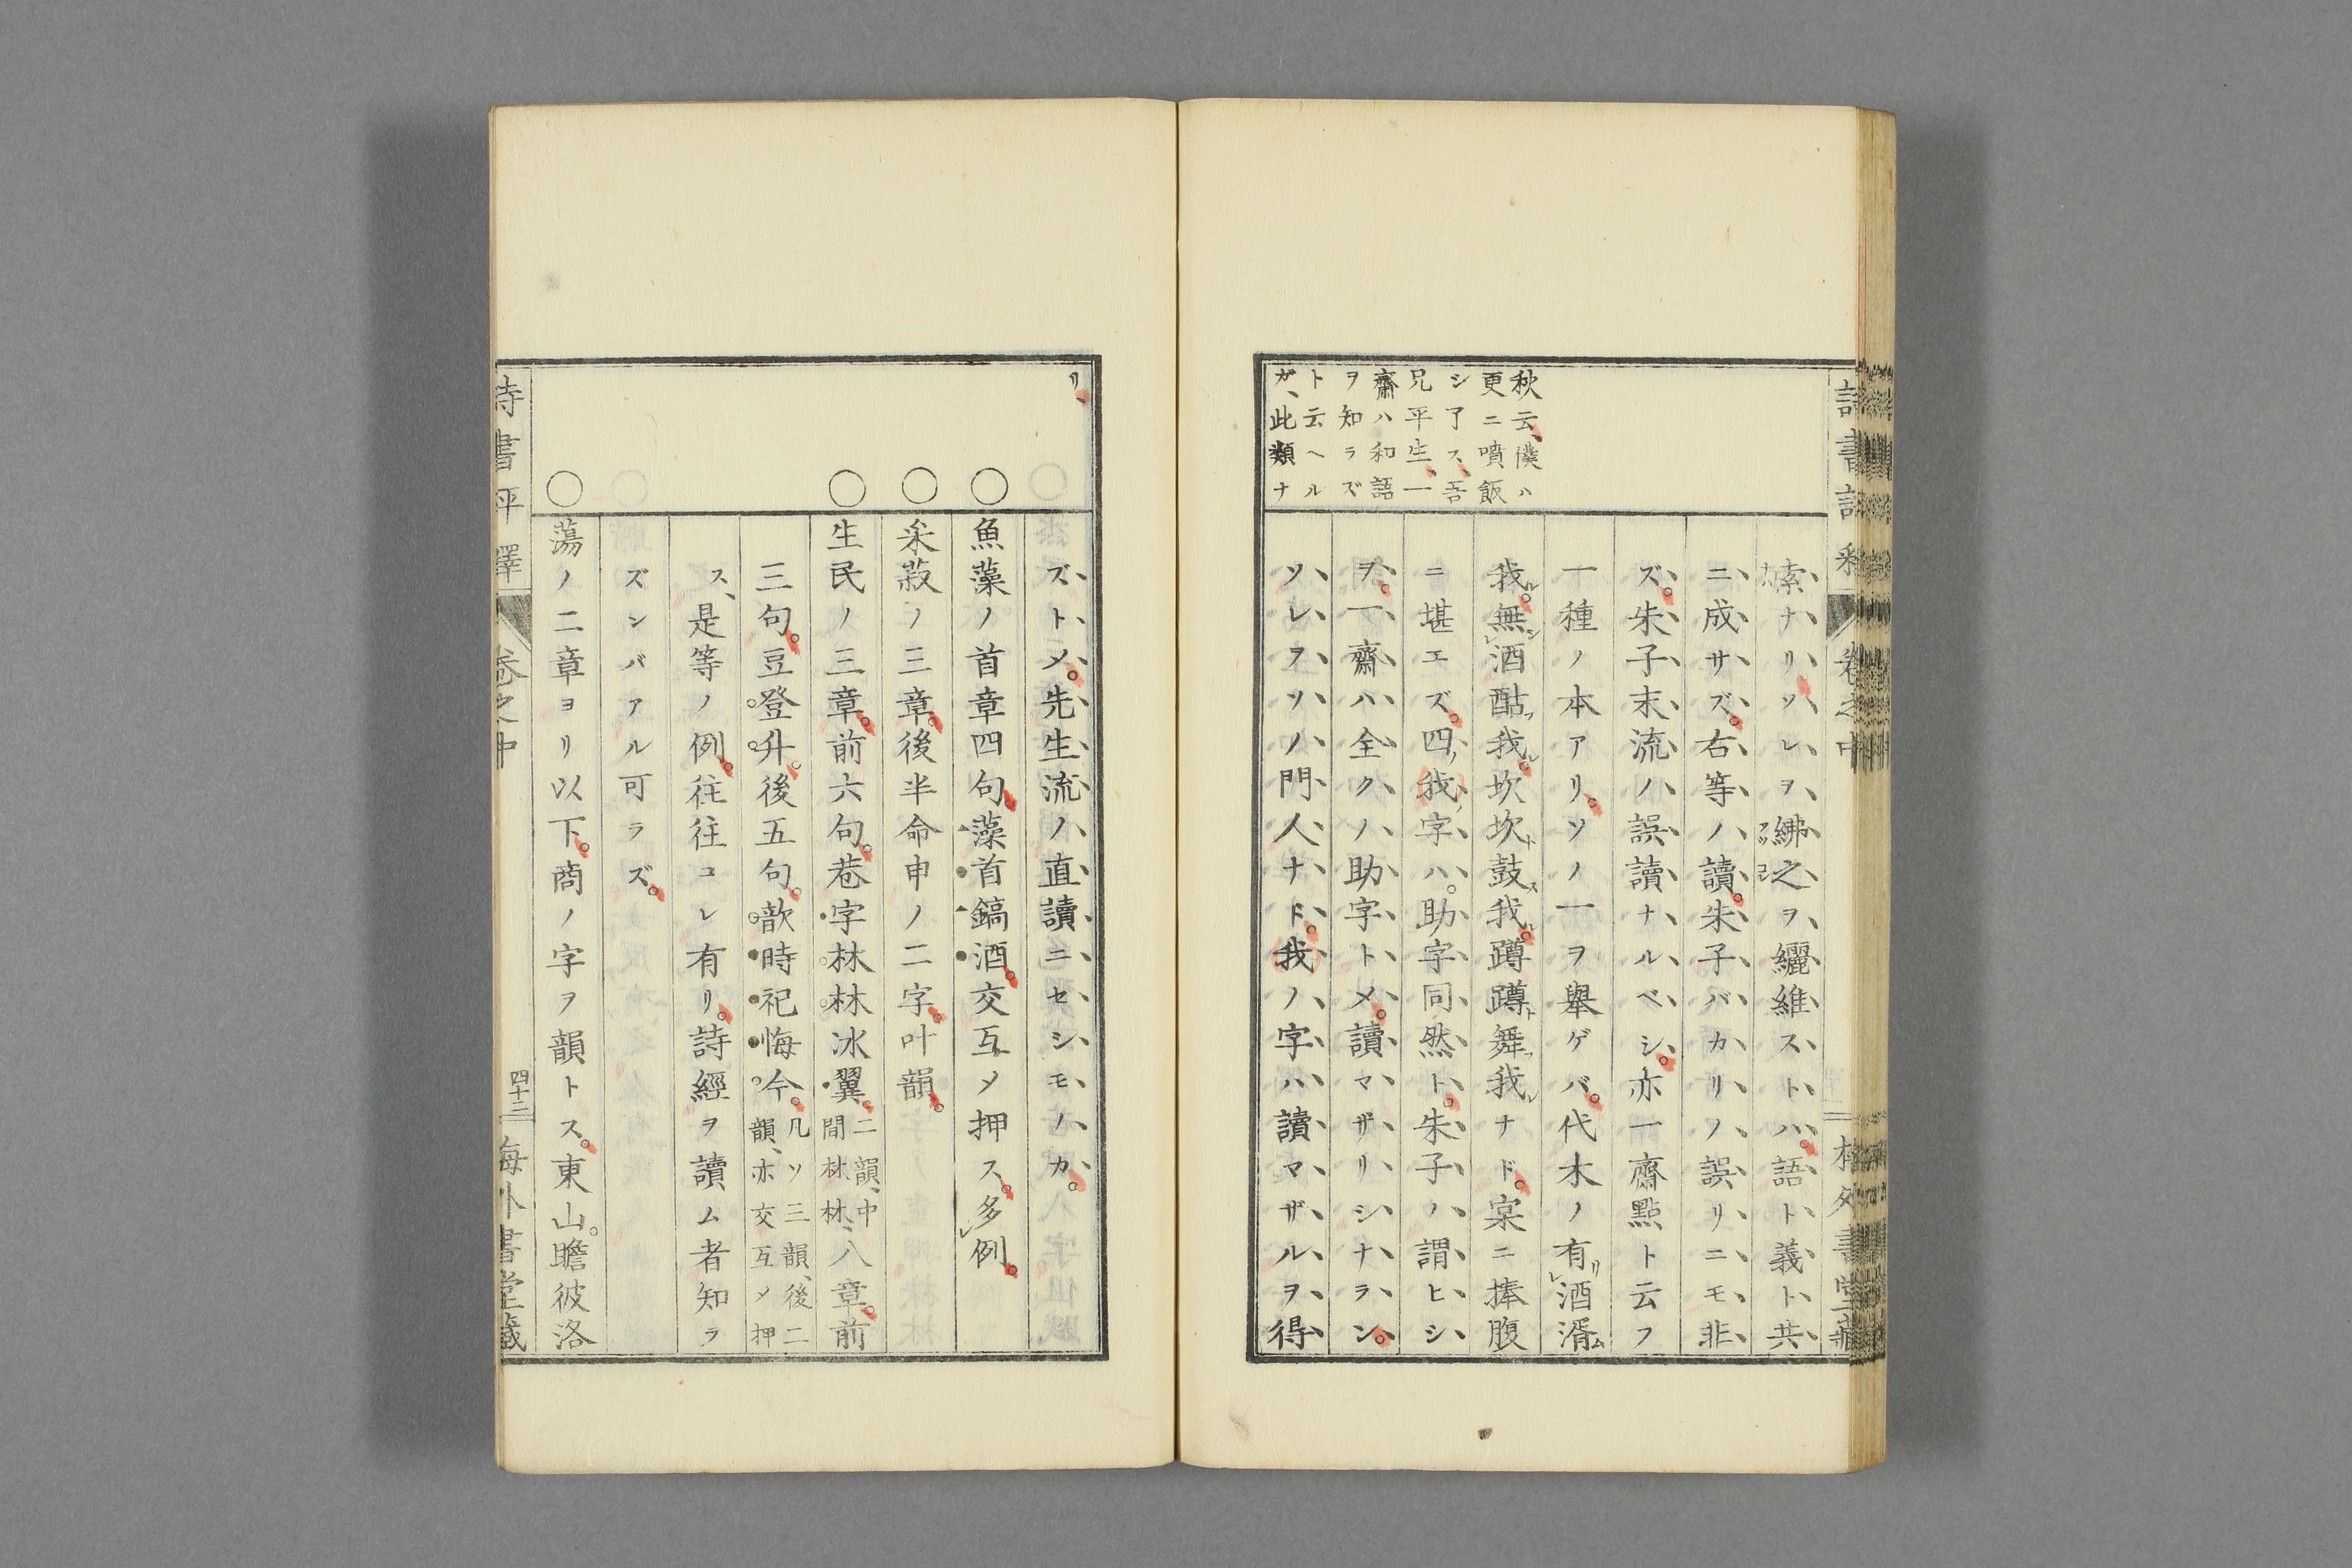 秋云、僕ハ
更ニ噴飯
シ了ス、吾
兄平生、一
齋ハ和語
ヲ知ラズ
ト云ヘル
ガ、此類ナ
索ナリ、ソレヲ紼之ヲ纚維ストハ、語ト義ト共
ニ成サズ。右等ノ讀。朱子バカリノ誤リニモ非
ズ。朱子末流ノ誤讀ナルベシ。亦一齋點ト云フ
一種ノ本アリ。ソノ一ヲ舉ゲバ。代木ノ有レ酒湑ム
我。無レ酒酤我。坎坎鼓我。蹲蹲舞我ナド。寀ニ捧腹
ニ堪エズ。四ノ我ノ字ハ。助字同然ト。朱子ノ謂ヒシ
ヲ。一齋ハ全クノ助字トメ。讀マザリシナラン。
ソレヲソノ門人ナド。我ノ字ハ讀マザルヲ得
リ、
ズトメ。先生流ノ直讀ニセシモノカ。
○魚藻ノ首章四句。藻首鎬酒。交互メ押ス。多例。
○采菽ノ三章。後半命申ノ二字。叶韻。
○生民ノ三章。前六句。巷字林林冰翼。二韻、中間林林、八章。前
三句。豆登升。後五句。歆時祀悔今。凡ソ三韻、後二韻、亦交互メ押
ス、是等ノ例。往往コレ有リ。詩經ヲ讀ム者知ラ
ズンバアル可ラズ。
○蕩ノ二章ヨリ以下。商ノ字ヲ韻トス。東山。瞻彼洛
詩書評釋 卷之中 四十三 海外書堂藏